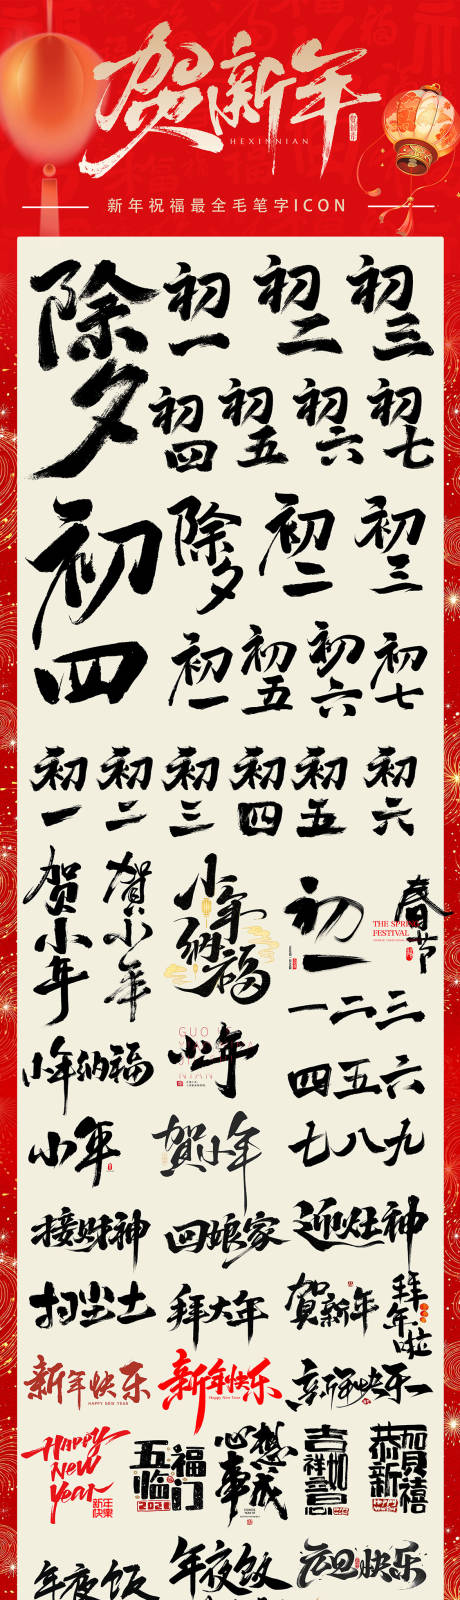 贺新年
HEXINNIAN
新年祝福最全毛笔字ICON
除夕
初一
初二
初三
初四
初五
初六
初七
初四
除夕
初二
初三
初一
初五
初六
初七
初一
初二
初三
初四
初五
初六
贺小年
賀小年
小年纳福
初一
春节
THE SPRING
FESTIVAL
一二三
小年纳福
小年
四五六
小年
賀小年
七八九
接财神
回娘家
迎灶神
扫尘土
拜大年
賀新年
拜年啦
新年快乐
HAPPY NEW YEAR
新年快乐
Happy New Year
新年快乐
Happy
New
Year
新年
快樂
五福临门
心想事成
吉祥如意
恭贺新禧
年夜饭
年夜饭
元旦快乐